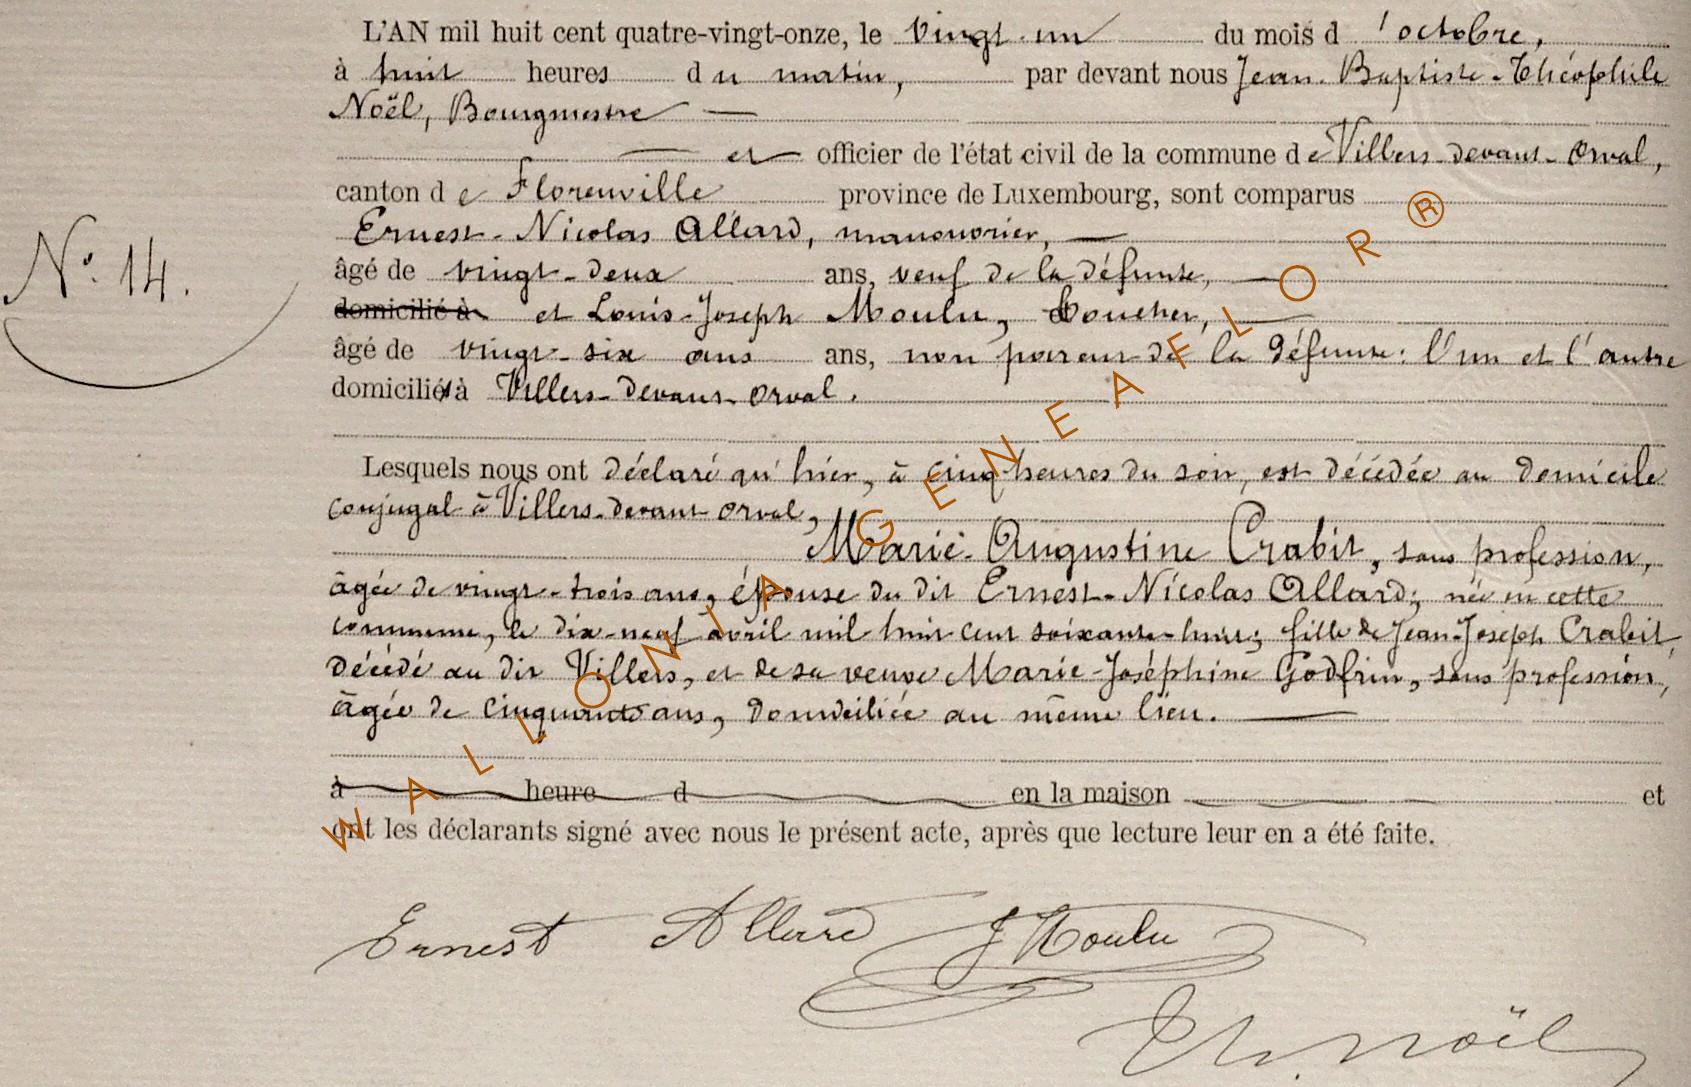 L'AN mil huit cent quatre-vingt-onze, le vingt-un du mois d'octobre,
à huit heures du matin, par devant nous Jean-Baptiste-Théophile
Noël, Bourgmestre
et officier de l'état civil de la commune de Villers-devant-Orval,
canton de Florenville province de Luxembourg, sont comparus
Ernest-Nicolas Allard, manouvrier,
âgé de vingt-deux ans, veuf de la défunte,
N.° 14.
domicilié à et Louis-Joseph Moulu, Boucher,
âgé de vingt-six ans ans, non parent de la défunte: l'un et l'autre
domiciliés à Villers-devant-Orval.
Lesquels nous ont déclaré qu'hier, à cinq heures du soir, est décédée au domicile
conjugal à Villers-devant-Orval,
Marie-Augustine Crabit, sans profession,
âgée de vingt-trois ans, épouse du dit Ernest-Nicolas Allard; née en cette
commune, le dix-neuf avril mil huit cent soixante-huit; fille de Jean-Joseph Crabit,
décédé au dit Villers, et de sa veuve Marie-Joséphine Godfrin, sans profession,
âgée de cinquante ans, domiciliée au même lieu.
à heure d en la maison et
ont les déclarants signé avec nous le présent acte, après que lecture leur en a été faite.
Ernest Allard J Moulu
Th. Noël
WALLONIA-GENEAFLOR®